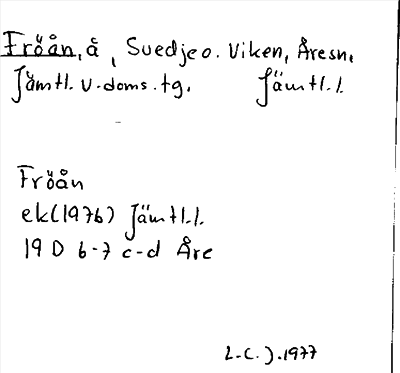 Fröån, å, Svedje o. Viken, Åresn,
Jämtl. v. doms. tg. Jämtl. l.
Fröån
ek (1976) Jämtl. l.
19 D 6-7 c-d Åre
L.C.J. 1977